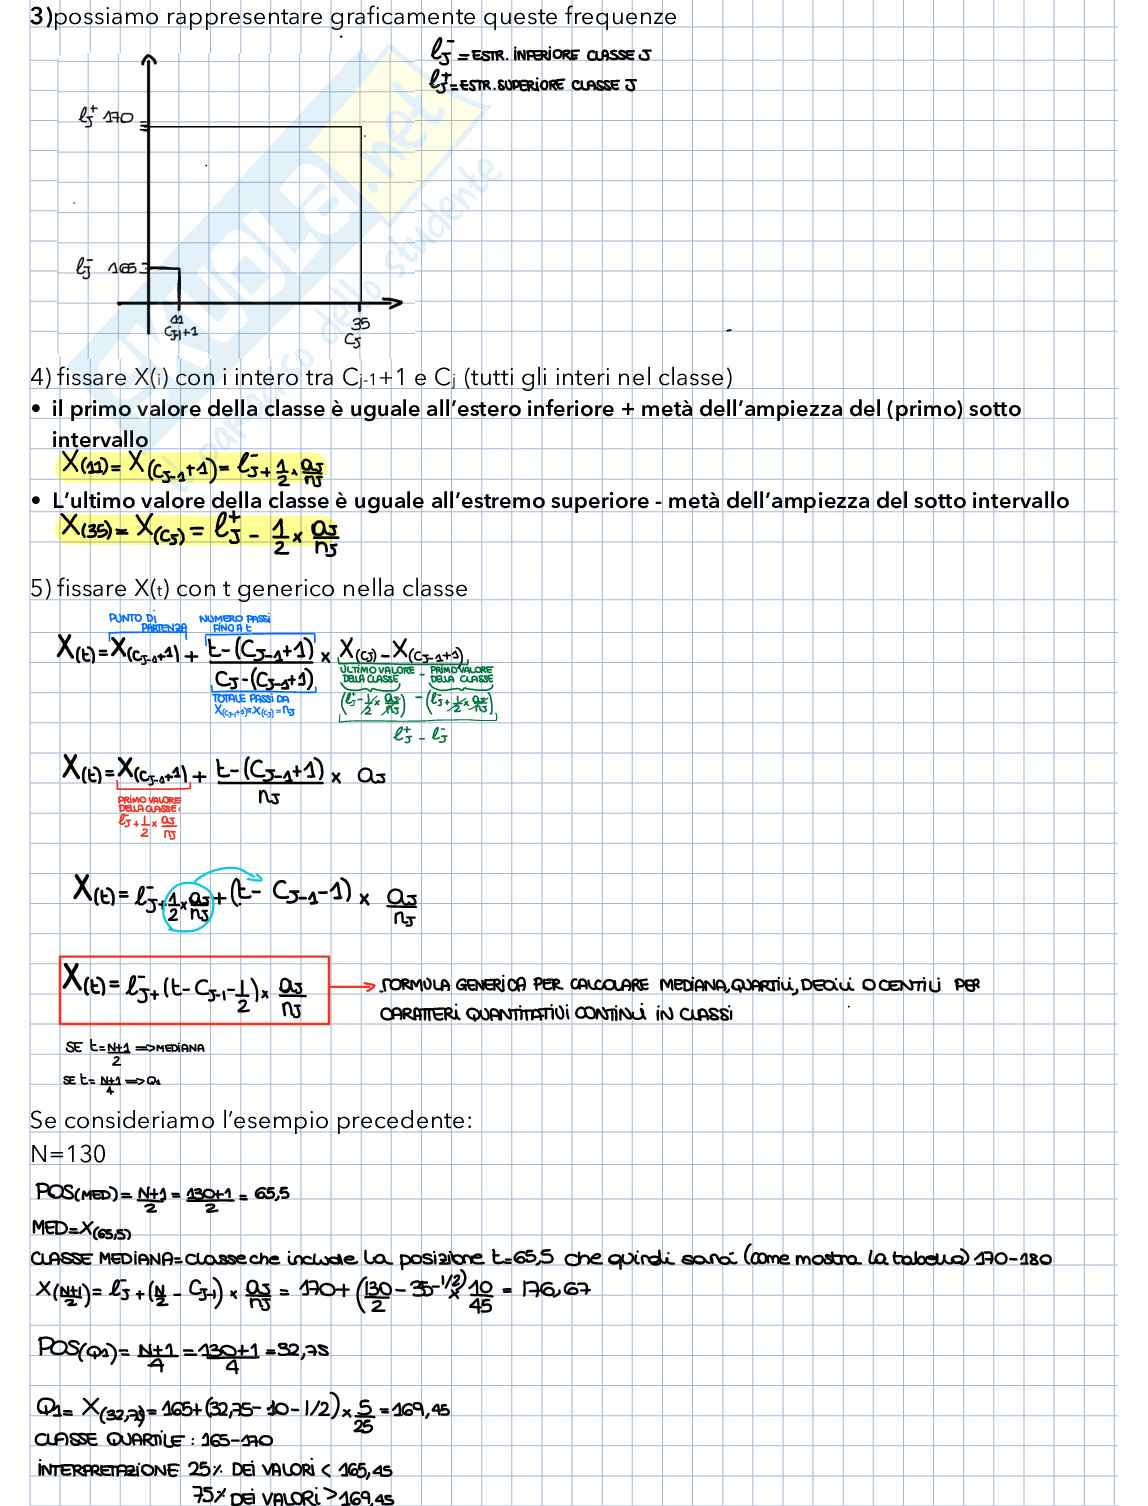 3)possiamo rappresentare graficamente queste frequenze
ℓJ⁻ = ESTR. INFERIORE CLASSE J
ℓJ⁺ = ESTR. SUPERIORE CLASSE J
ℓJ⁺ 170
ℓJ⁻ 165
11
CJ-1+1
35
CJ
SKUOLA.net
4) fissare X(i) con i intero tra Cj-1+1 e Cj (tutti gli interi nel classe)
• il primo valore della classe è uguale all’estero inferiore + metà dell’ampiezza del (primo) sotto
intervallo
X(11) = X(CJ-1+1) = ℓJ⁻ + 1/2 × aJ/nJ
• L’ultimo valore della classe è uguale all’estremo superiore - metà dell’ampiezza del sotto intervallo
X(35) = X(CJ) = ℓJ⁺ - 1/2 × aJ/nJ
5) fissare X(t) con t generico nella classe
PUNTO DI PARTENZA
NUMERO PASSI FINO A t
X(t) = X(CJ-1+1) + t-(CJ-1+1)/CJ-(CJ-1+1) × X(CJ) - X(CJ-1+1)
TOTALE PASSI DA X(CJ-1+1) = X(CJ) = nJ
ULTIMO VALORE DELLA CLASSE - PRIMO VALORE DELLA CLASSE
(ℓJ⁺ - 1/2 × aJ/nJ) - (ℓJ⁻ + 1/2 × aJ/nJ)
ℓJ⁺ - ℓJ⁻
X(t) = X(CJ-1+1) + t-(CJ-1+1)/nJ × aJ
PRIMO VALORE DELLA CLASSE:
ℓJ⁻ + 1/2 × aJ/nJ
X(t) = ℓJ⁻ + 1/2 × aJ/nJ + (t - CJ-1 - 1) × aJ/nJ
X(t) = ℓJ⁻ + (t - CJ-1 - 1/2) × aJ/nJ → FORMULA GENERICA PER CALCOLARE MEDIANA, QUARTILI, DECILI O CENTILI PER
CARATTERI QUANTITATIVI CONTINUI IN CLASSI
SE t = N+1/2 => MEDIANA
SE t = N+1/4 => Q1
Se consideriamo l’esempio precedente:
N=130
POS(MED) = N+1/2 = 130+1/2 = 65,5
MED = X(65,5)
CLASSE MEDIANA = classe che include la posizione t=65,5 che quindi sarà (come mostra la tabella) 170-180
X(N+1/2) = ℓJ⁻ + (N/2 - CJ-1) × aJ/nJ = 170 + (130/2 - 35 - 1/2) × 10/45 = 176,67
POS(Q1) = N+1/4 = 130+1/4 = 32,75
Q1 = X(32,75) = 165 + (32,75 - 10 - 1/2) × 5/25 = 169,45
CLASSE QUARTILE : 165-170
INTERPRETAZIONE 25% DEI VALORI < 165,45
75% DEI VALORI > 169,45